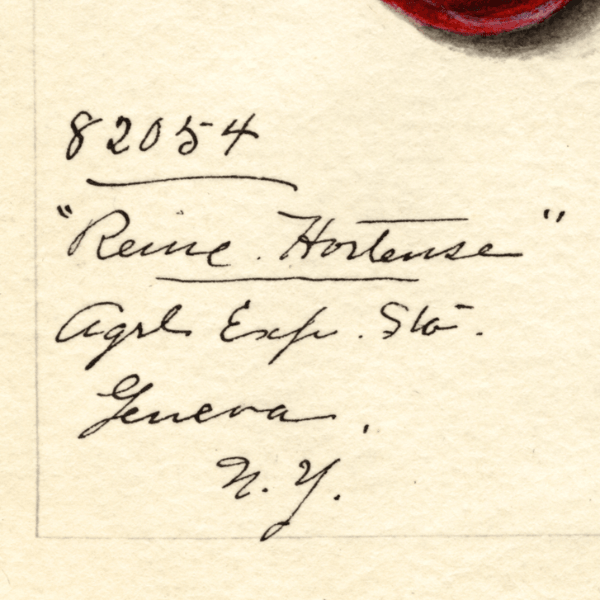 82054
"Reine Hortense"
Agrl Exp. Sta.
Geneva,
N.Y.